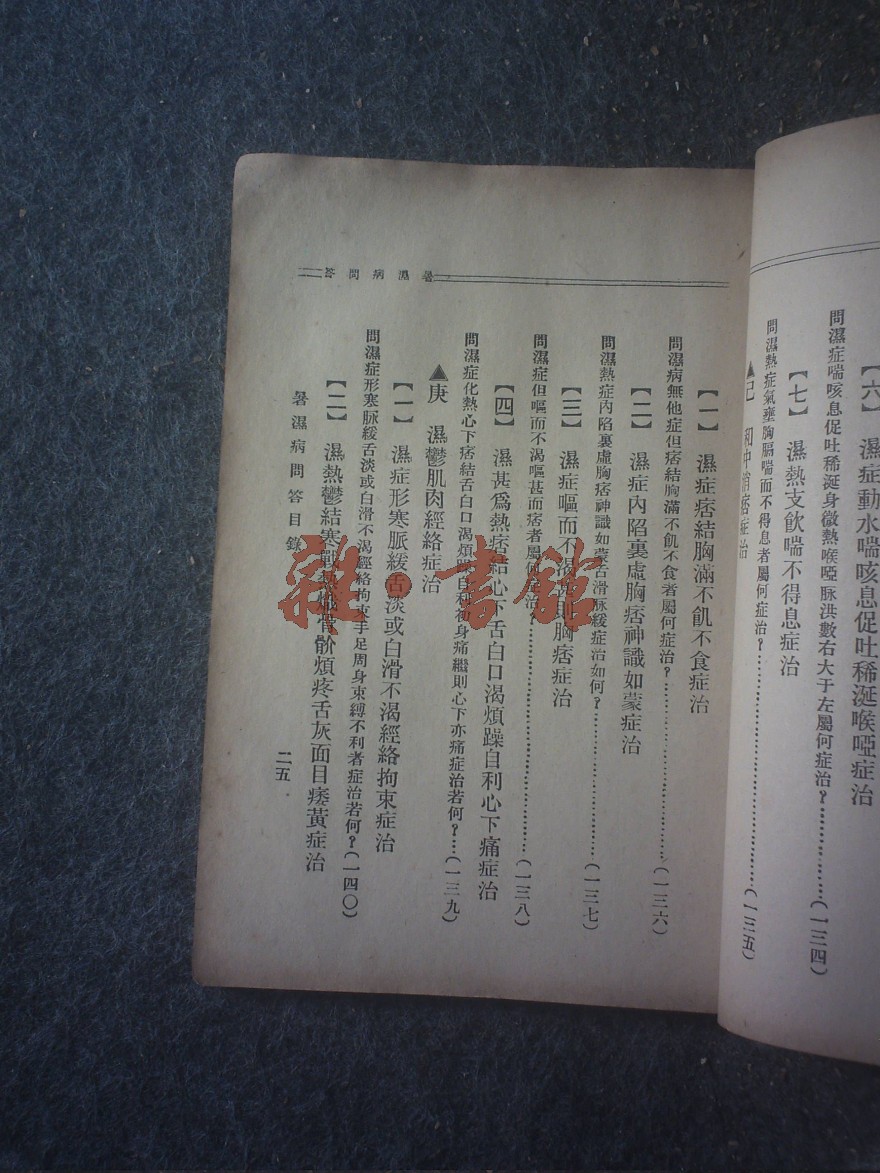 【六】　濕症動水喘咳息促吐稀涎喉啞症治
問濕症喘咳息促吐稀涎身微熱喉啞脈洪數右大于左屬何症治？………(一三四)
【七】　濕熱支飲喘不得息症治
問濕熱症氣壅胸膈喘而不得息者屬何症治？………(一三五)
▲己　和中消痞症治
暑濕病問答
【一】　濕症痞結胸滿不飢不食症治
問濕病無他症但痞結胸滿不飢不食者屬何症治？………(一三六)
【二】　濕症內陷裏虛胸痞神識如蒙症治
問濕熱症內陷裏虛胸痞神識如蒙舌滑脈緩症治如何？………(一三七)
【三】　濕症嘔而不渴甚則胸痞症治
問濕症但嘔而不渴嘔甚而痞者屬何症治？………(一三八)
【四】　濕甚爲熱痞結心下舌白口渴煩躁自利心下痛症治
問濕症化熱心下痞結舌白口渴煩躁自利初身痛繼則心下亦痛症治若何？…(一三九)
▲庚　濕鬱肌肉經絡症治
【一】　濕症形寒脈緩舌淡或白滑不渴經絡拘束症治
問濕症形寒脈緩舌淡或白滑不渴經絡拘束手足周身束縛不利者症治若何？(一四〇)
【二】　濕熱鬱結寒戰熱熾骨骱煩疼舌灰面目痿黃症治
暑濕病問答目錄
二五
雜·書館